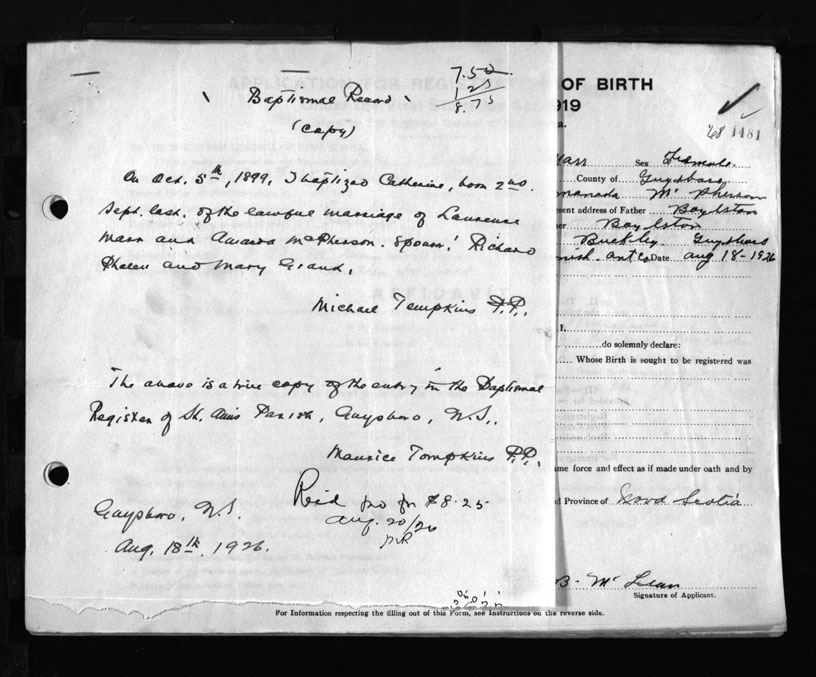 7.50
1 25
8.75
Baptismal Record
(copy)
On Oct. 5th, 1899, I baptized Catherine, born 2nd.
Sept. last. of the lawful marriage of Laurence
Marr and Amanda McPherson. Spons: Richard
Phalen and Mary Grant.
Michael Tompkins P.P.
The above is a true copy of the entry in the Baptismal
Register of St. Ann's Parish, Guysboro, N.S.
Maurice Tompkins P.P.
Guysboro, N.S.
Aug. 18th, 1926.
Rec'd for $8.25
Aug. 20/26
OF BIRTH
1919
1481
Marr Sex Female
County of Guysboro
Amanda McPherson
present address of Father Boylston
Boylston
Buckley Guysboro
Date Aug 18-1926
I,
do solemnly declare:
Whose Birth is sought to be registered was
same force and effect as if made under oath and by
Province of Nova Scotia
B. McLean
Signature of Applicant.
For Information respecting the filling out of this Form, see Instructions on the reverse side.